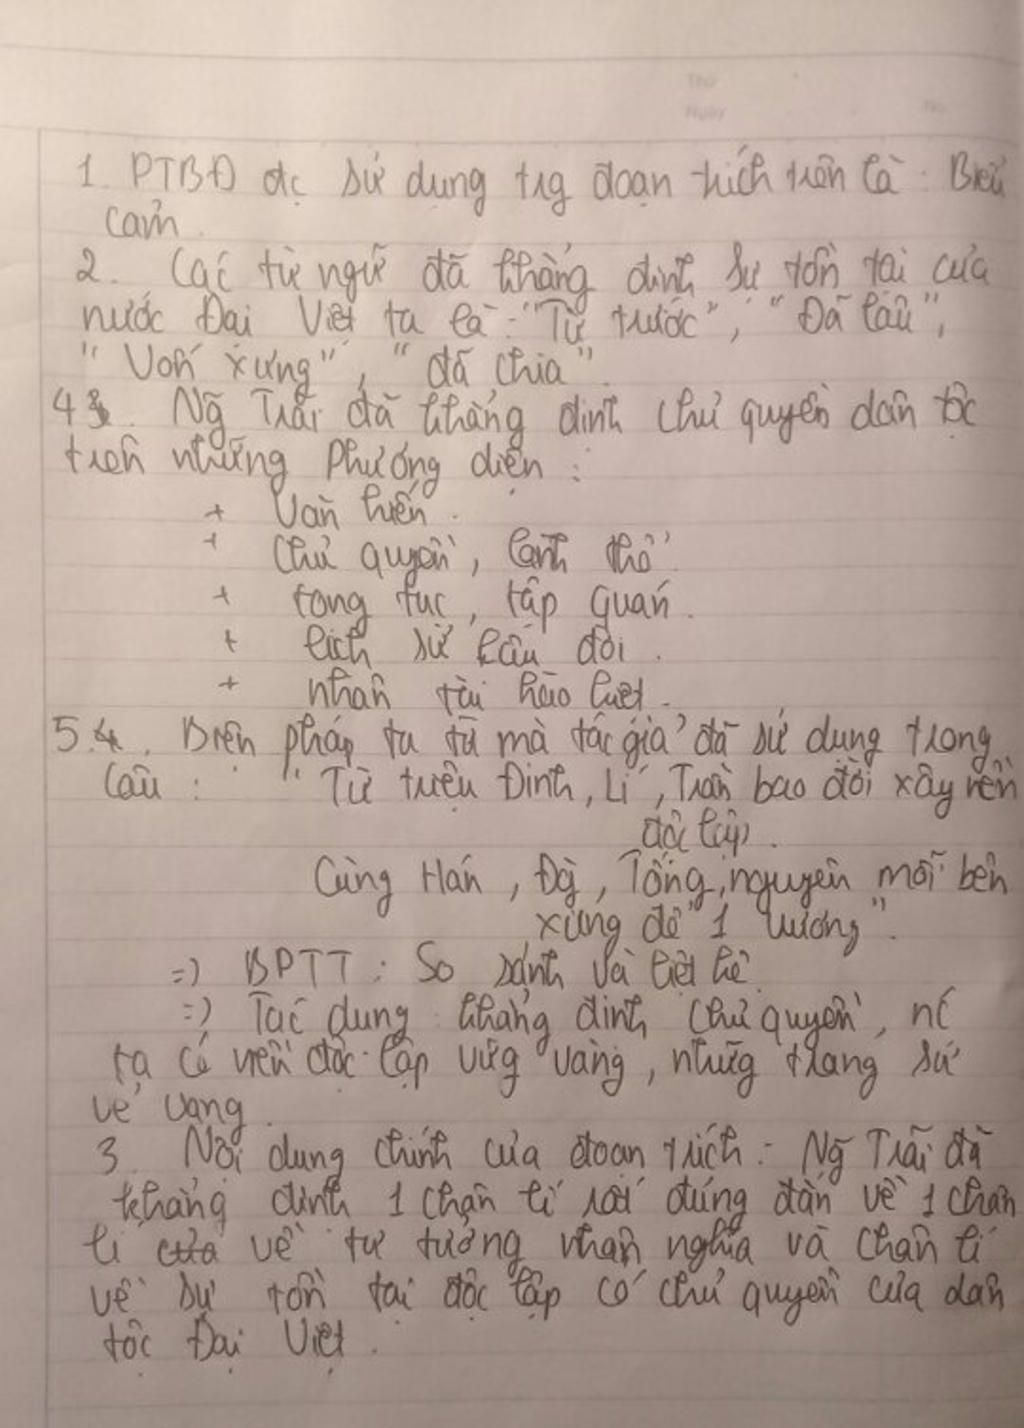 Thứ
Ngày No.
1. PTBĐ đc sử dụng trg đoạn trích trên là : Biểu
cảm.
2. Các từ ngữ đã khẳng định sự tồn tại của
nước Đại Việt ta là : "Từ trước", "Đã lâu",
"Vốn xưng", "đã chia".
4. Ng Trãi đã khẳng định chủ quyền dân tộc
trên những phương diện :
+ Văn hiến.
+ Chủ quyền, lãnh thổ.
+ Phong tục, tập quán.
+ lịch sử lâu đời.
+ nhân tài hào kiệt.
5. Biện pháp tu từ mà tác giả đã sử dụng trong
câu : "Từ triệu Đinh, Lí, Trần bao đời xây nền
độc lập.
Cùng Hán, Đg, Tống, nguyên mỗi bên
xưng đế 1 phương".
=> BPTT : So sánh và liệt kê.
=> Tác dụng : khẳng định chủ quyền, nc
ta có nền độc lập vững vàng, những trang sử
vẻ vang.
3. Nội dung chính của đoạn trích : Ng Trãi đã
khẳng định 1 chân lí rất đúng đắn về 1 chân
lí về tư tưởng nhân nghĩa và chân lí
về sự tồn tại độc lập có chủ quyền của dân
tộc Đại Việt.